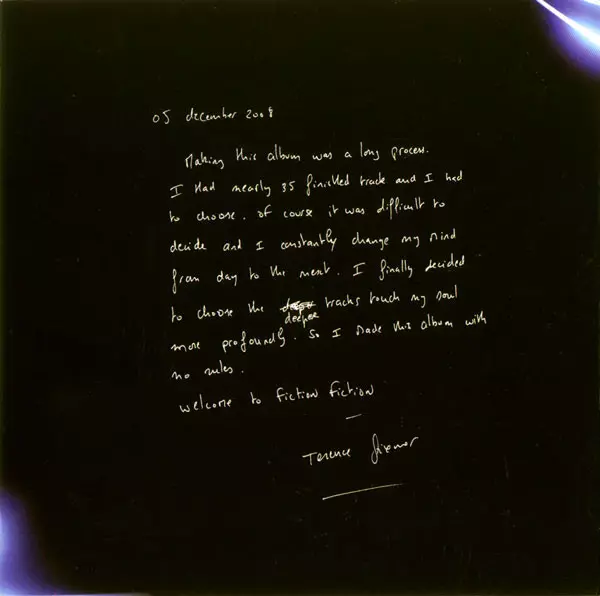 05 december 2008
Making this album was a long process.
I Had nearly 35 finished track and I had
to choose. of course it was difficult to
decide and I constantly change my mind
from day to the next. I finally decided
to choose the deeper tracks touch my soul
more profoundly. So I made this album with
no rules.
welcome to fiction fiction
Terence fixmer